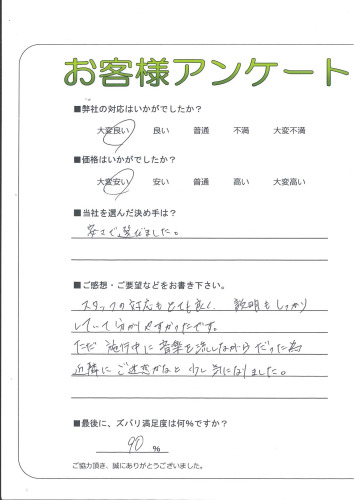 お客様アンケート
■弊社の対応はいかがでしたか?
大変良い 良い 普通 不満 大変不満
■価格はいかがでしたか?
大変安い 安い 普通 高い 大変高い
■当社を選んだ決め手は?
安さで選びました。
■ご感想・ご要望などをお書き下さい。
スタッフの対応もとても良く、説明もしっかり
していて分かりやすかったです。
ただ施行中に音楽を流しながらだった為
近隣にご迷惑かなと少し気になりました。
■最後に、ズバリ満足度は何%ですか?
90 %
ご協力頂き、誠にありがとうございました。